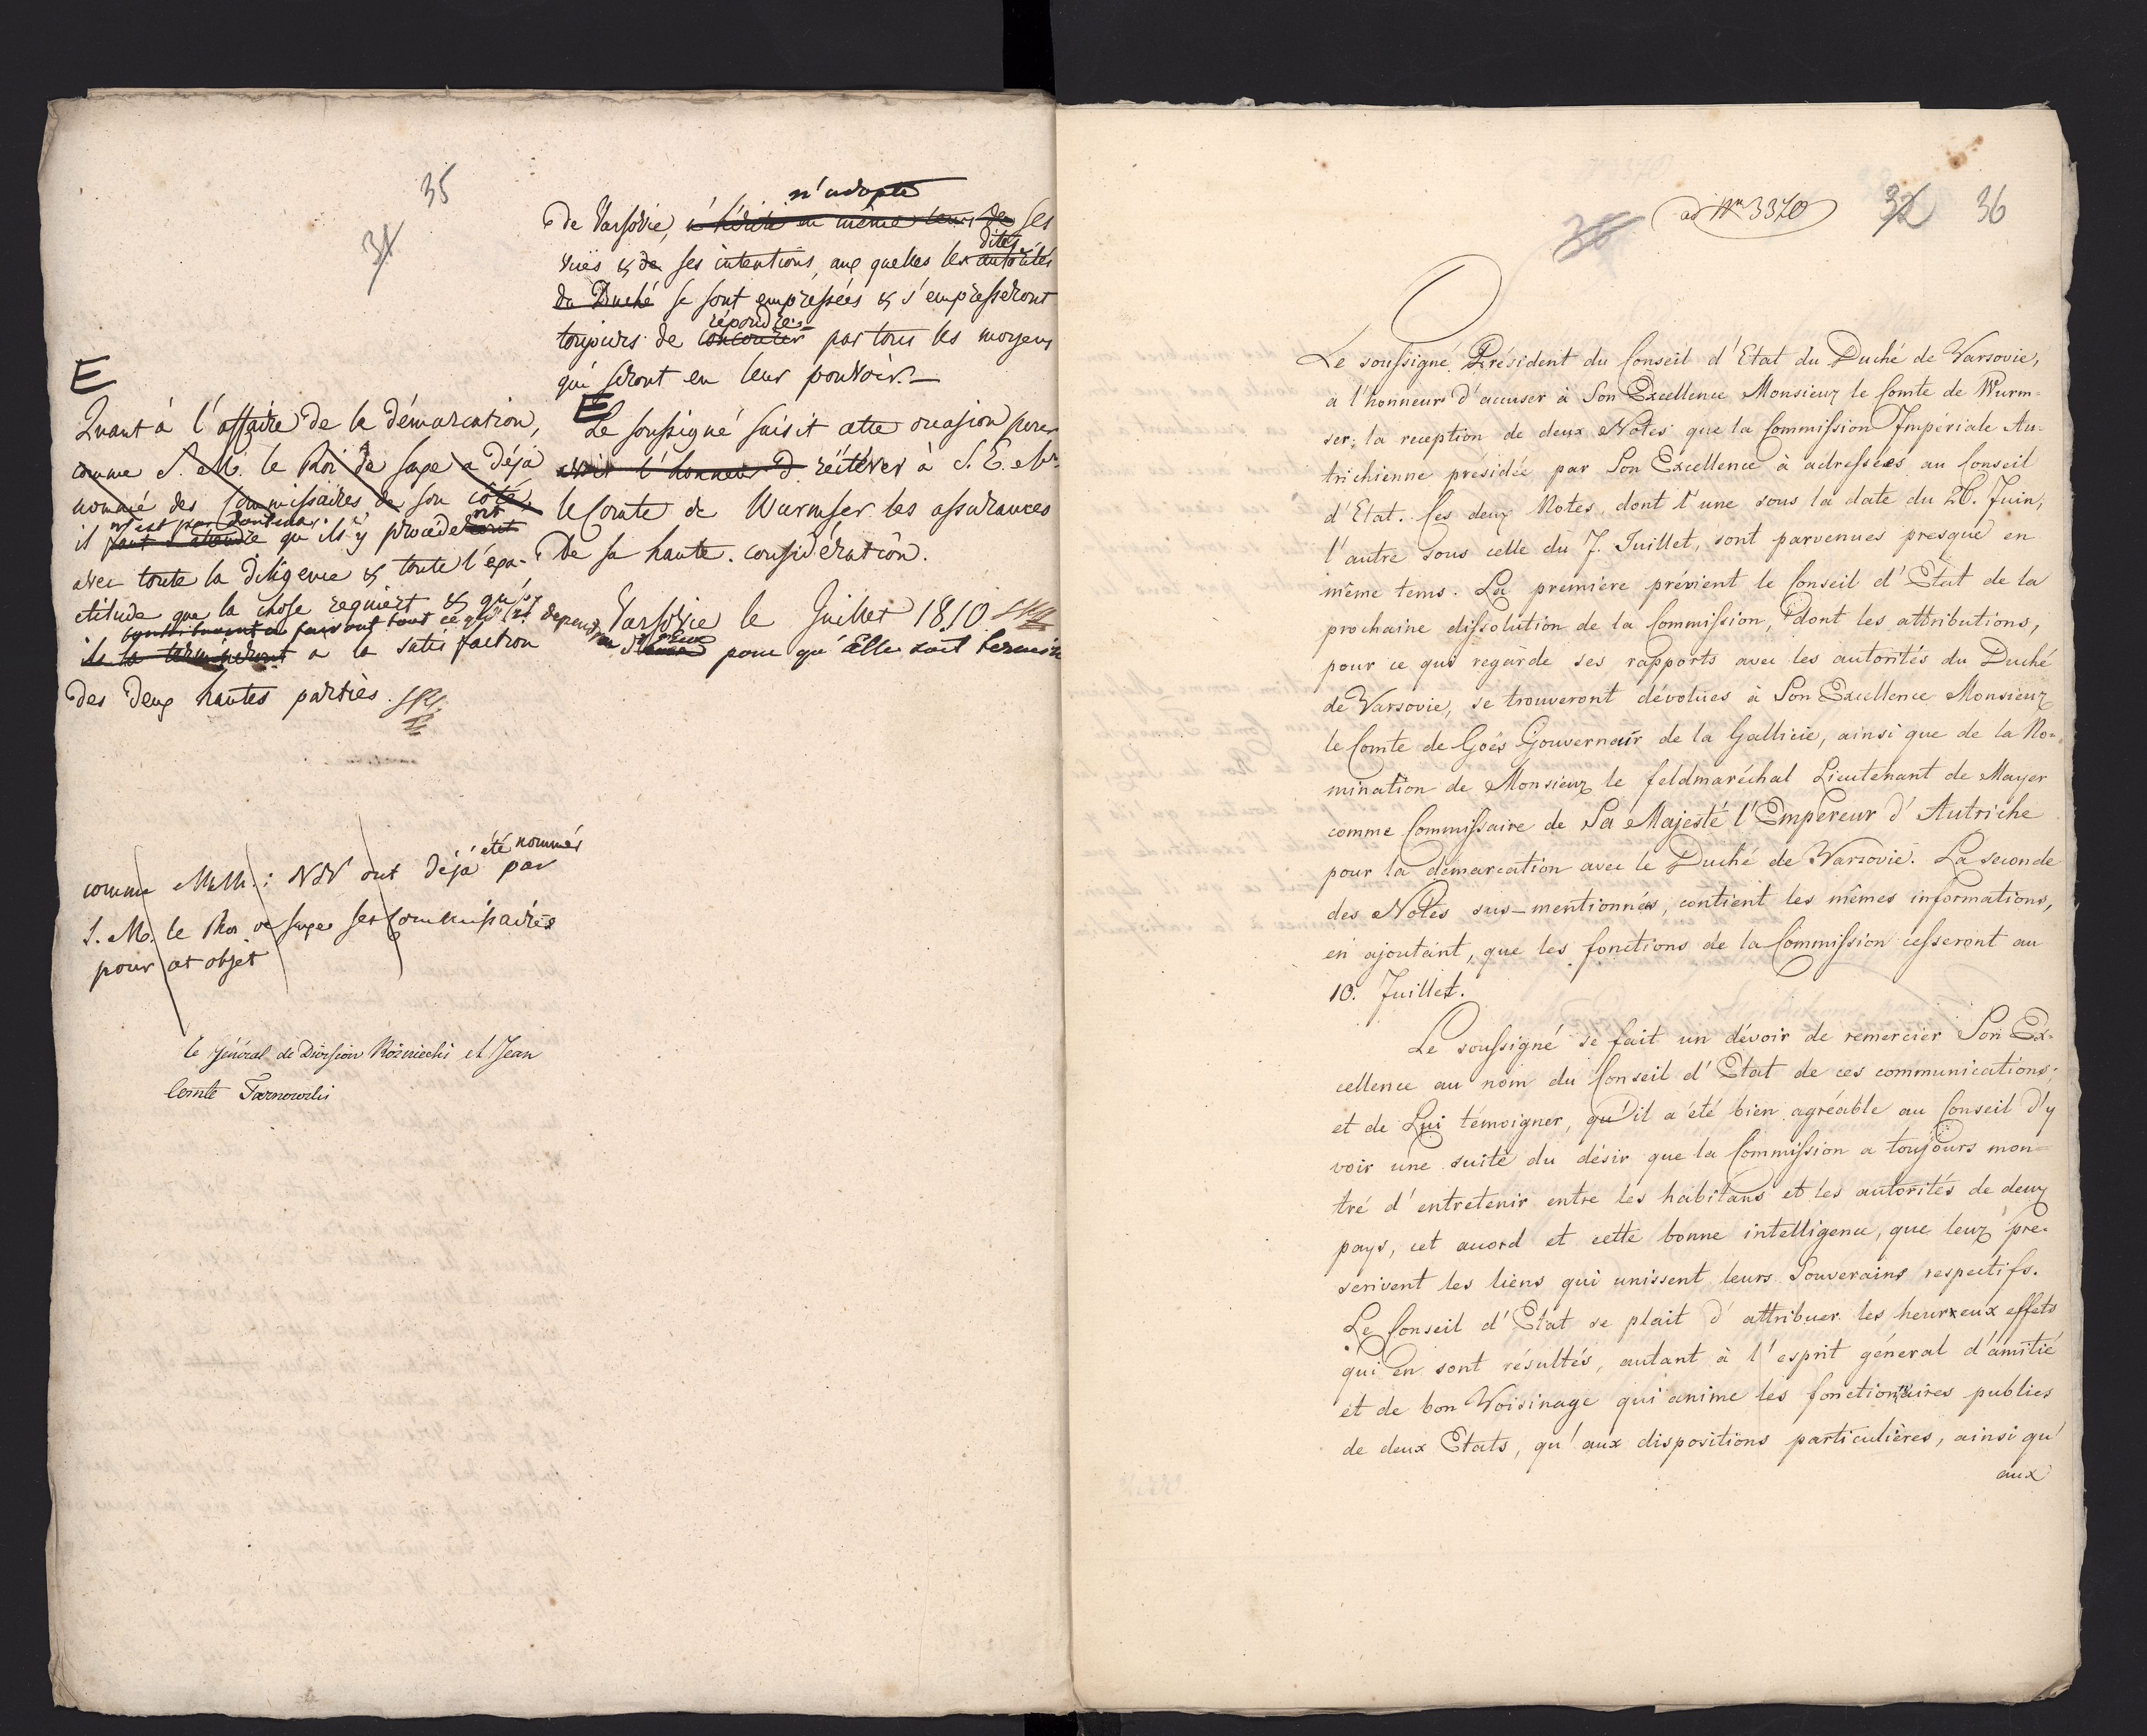 35
34
n'adopte
de Varsovie, n'hérite en même tems de ses
dites
vües & de ses intentions, aux quelles les autorités
du Duché se sont empressées & s'empresseront
répondre
toujours de concourir par tous les moyens
qui seront en leur pouvoir.—
E
Le soussigné saisit cette occasion pour
avoir l'honneur d. réitérer à S. E. Mr
le Comte de Wurmser les assurances
de sa haute considération.
Varsovie le Juillet 1810
E
Quant à l'affaire de la démarcation,
comme S. M. le Roi de Saxe a déjà
nommé des Commissaires de son côté,
n'est pas douteux
il faut s'attendre qu'ils y procederont
avec toute la diligence & toute l'exa-
ctitude que la chose requiert & qu'
feront tout ce qui depend
ils la termineront a la satisfaction
d'Eux pour qu'Elle soit terminée
des deux hautes parties.
comme MM.: NN ont déjà été nommés par
S. M. le Roi de Saxe ses Commissaires
pour cet objet
le Général de Division Rożniecki et Jean
Comte Tarnowski
ad Nr 3370
32
36
Le soussigné Président du Conseil d'Etat du Duché de Varsovie,
a l'honneur d'accuser à Son Excellence Monsieur le Comte de Wurm-
ser, la reception de deux Notes que la Commission Impériale Au-
trichienne présidée par Son Excellence à adressées au Conseil
d'Etat. Ces deux Notes, dont l'une sous la date du 26. Juin,
l'autre sous celle du 7. Juillet, sont parvenues presque en
même tems. La premiere prévient le Conseil d'Etat de la
prochaine dissolution de la Commission, dont les attributions,
pour ce qui regarde ses rapports avec les autorités du Duché
de Varsovie, se trouveront dévolües à Son Excellence Monsieur
le Comte de Goës Gouverneur de la Gallicie, ainsi que de la No-
mination de Monsieur le feldmaréchal Lieutenant de Mayer
comme Commissaire de Sa Majesté l'Empereur d'Autriche
pour la démarcation avec le Duché de Varsovie. La seconde
des Notes sus-mentionnés, contient les mêmes informations,
en ajoutant, que les fonctions de la Commission cesseront au
10. Juillet.
Le soussigné se fait un dévoir de remercier Son Ex-
cellence au nom du Conseil d'Etat de ces communications;
et de Lui témoigner, qu'il a été bien agréable au Conseil d'y
voir une suite du désir que la Commission a toujours mon-
tré d'entretenir entre les habitans et les autorités de deux
pays, cet accord et cette bonne intelligence, que leur pre-
scrivent les liens qui unissent leurs Souverains respectifs.
Le Conseil d'Etat se plait d'attribuer les heureux effets
qui en sont résultés, autant à l'esprit géneral d'amitié
et de bon Voisinage qui anime les fonctionnaires publics
de deux Etats, qu'aux dispositions particulières, ainsi qu'
aux